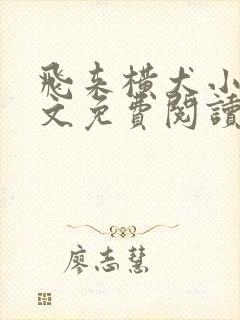 飛来橫犬小
文免費閱讀
廖志慧